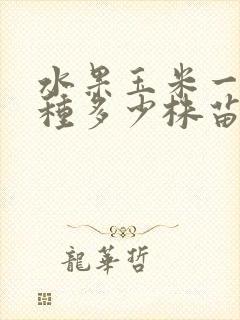 水果玉米一
種多少株苗
龍華哲